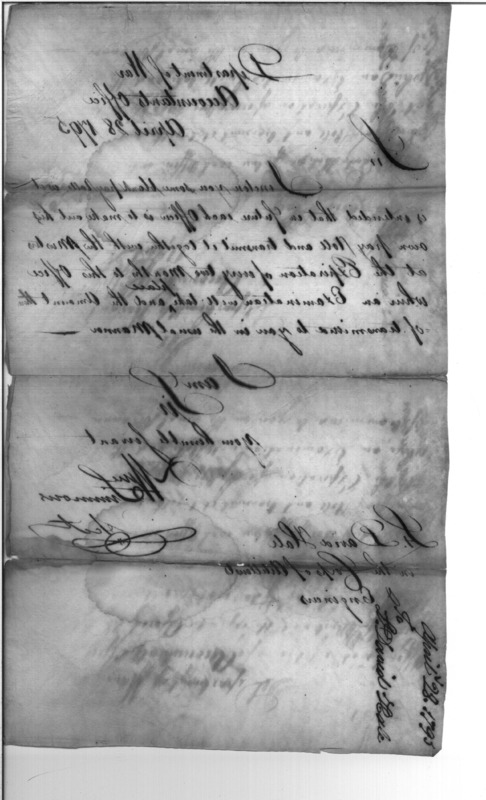 Department of War
Accountants Office
April 28 1795
Sir
I enclose you some blank pay rolls and
is intended that in future each Officer is to make out his
own pay Roll and transmit it together with the Muster
at the Expiration of every two Months to this Office
when an Examination will take place and the Amount the
of transmitted to you in the usual Manner
I am
Sir
your humble Servant
Wm Simmons
Lt. David Hale
in the Corps of Artil and
Engineers
April 28. 1795
To
Lt David Hale